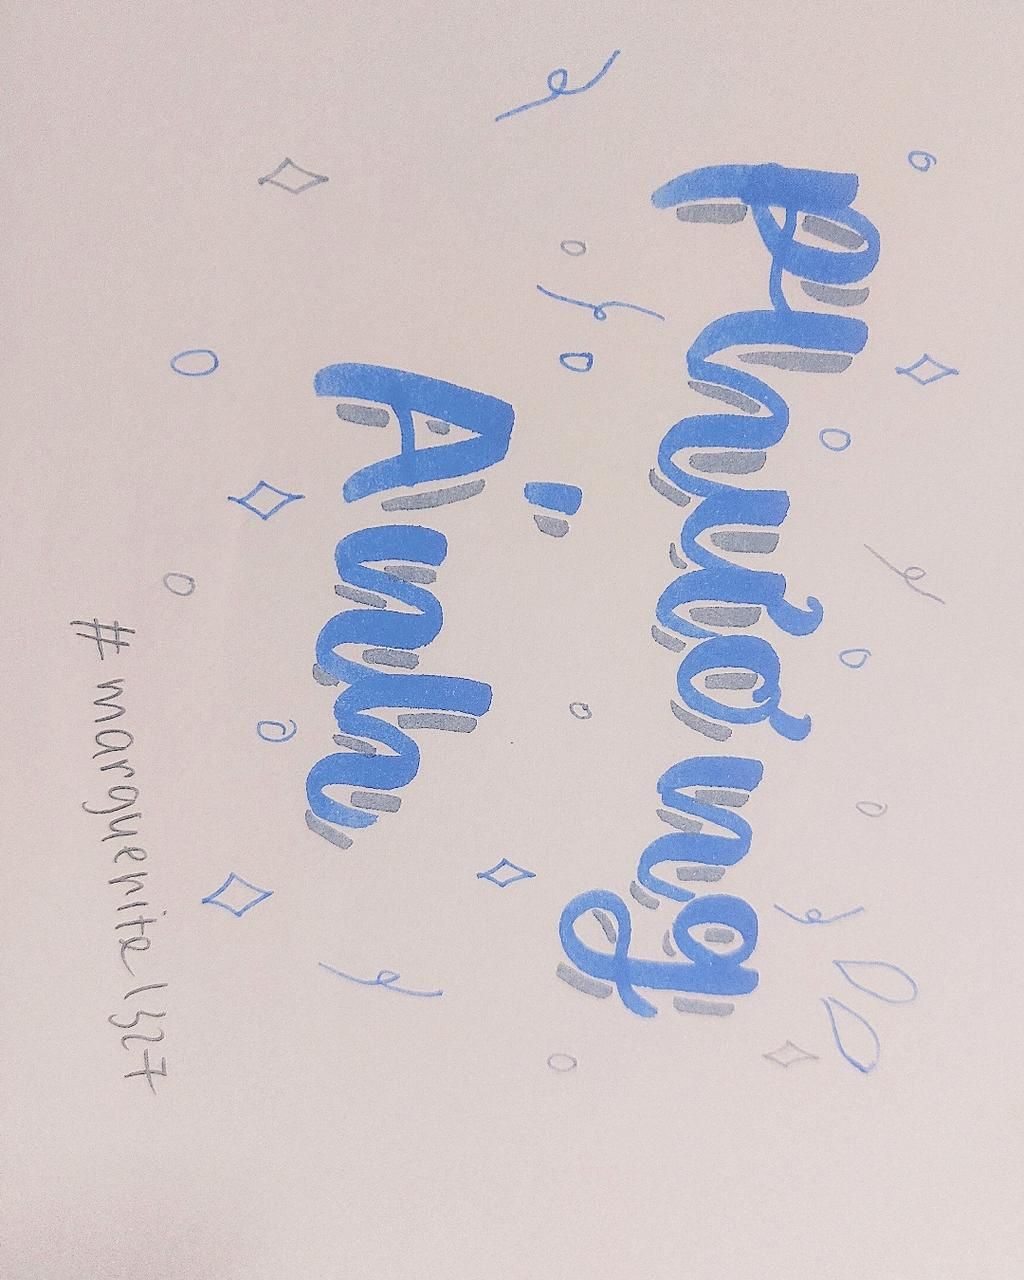 Phương
Ánh
# marguerite1527